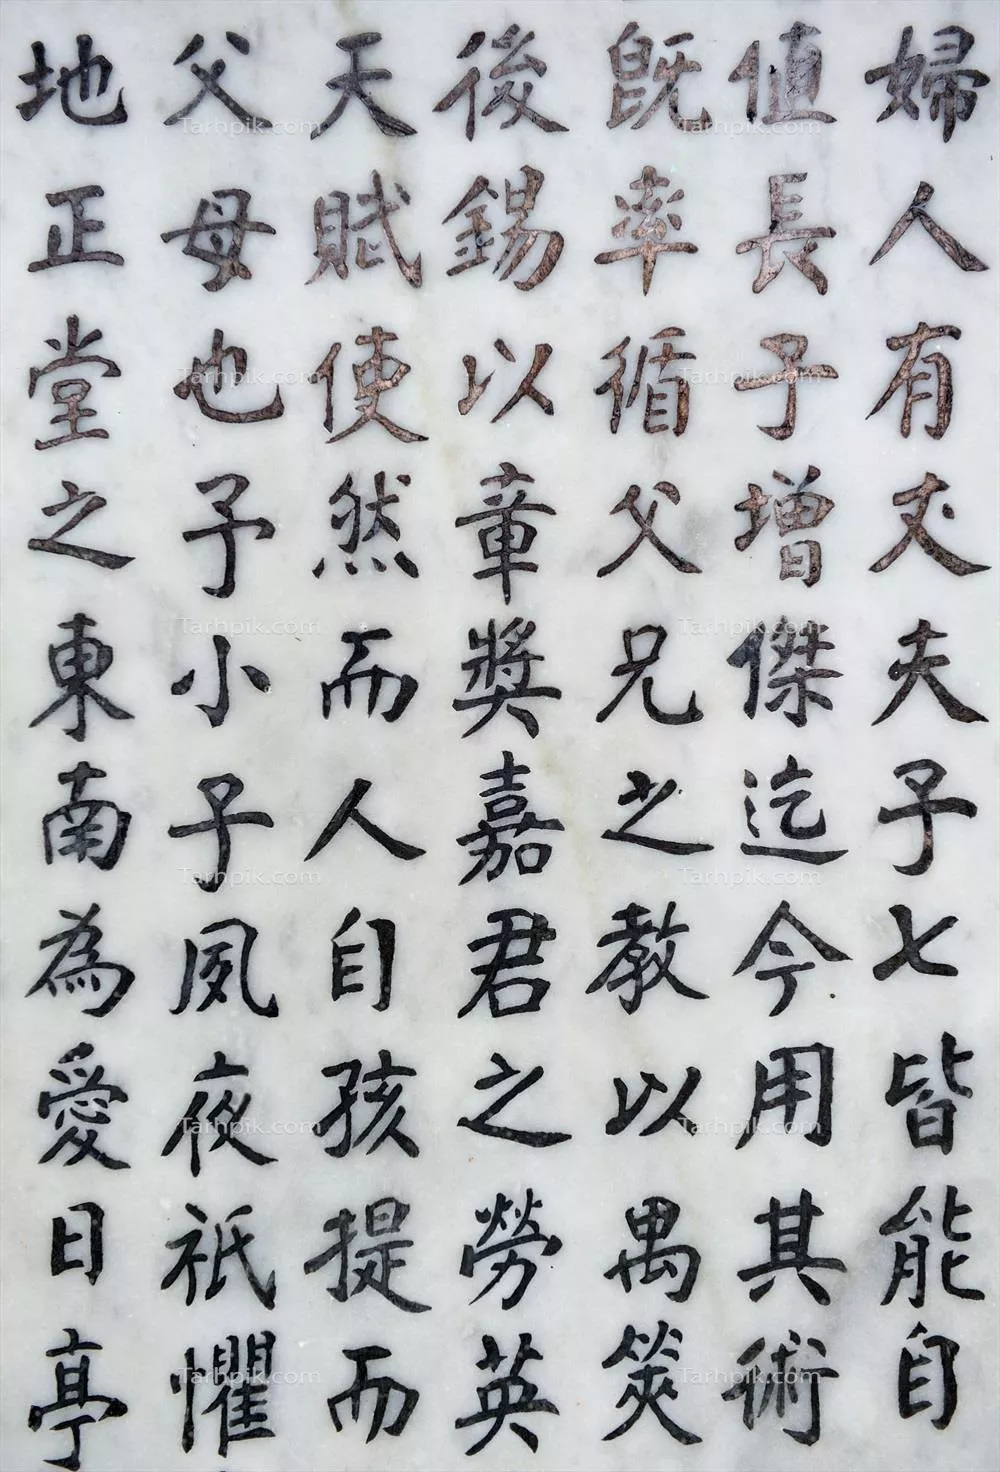 婦人有丈夫子七皆能自
值長子增傑迄今用其術
既率循父兄之教以禺筴
後錫以章獎嘉君之勞英
天賦使然而人自孩提而
父母也予小子夙夜祇懼
地正堂之東南為愛日亭
Tarhpik.com